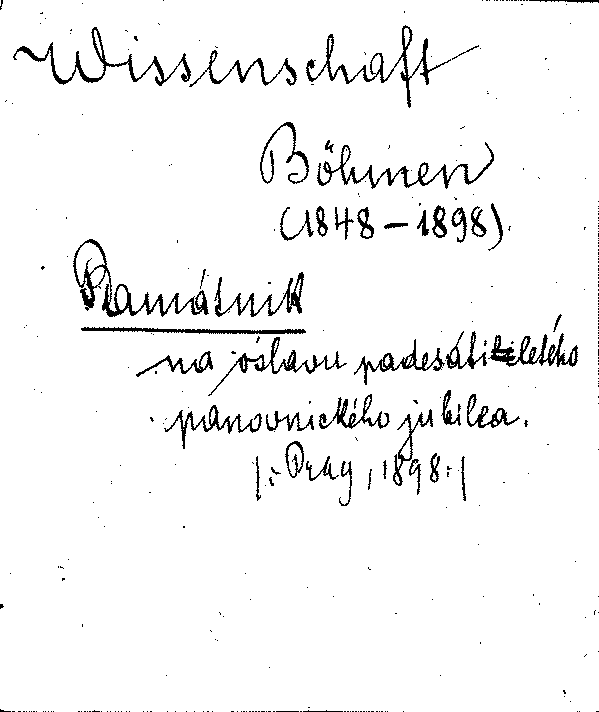 Wissenschaft
Böhmen
(1848 – 1898)
Pamâtnik
na oslavu padesátiletého
panovnického jubilea.
|: Prag, 1898 :|